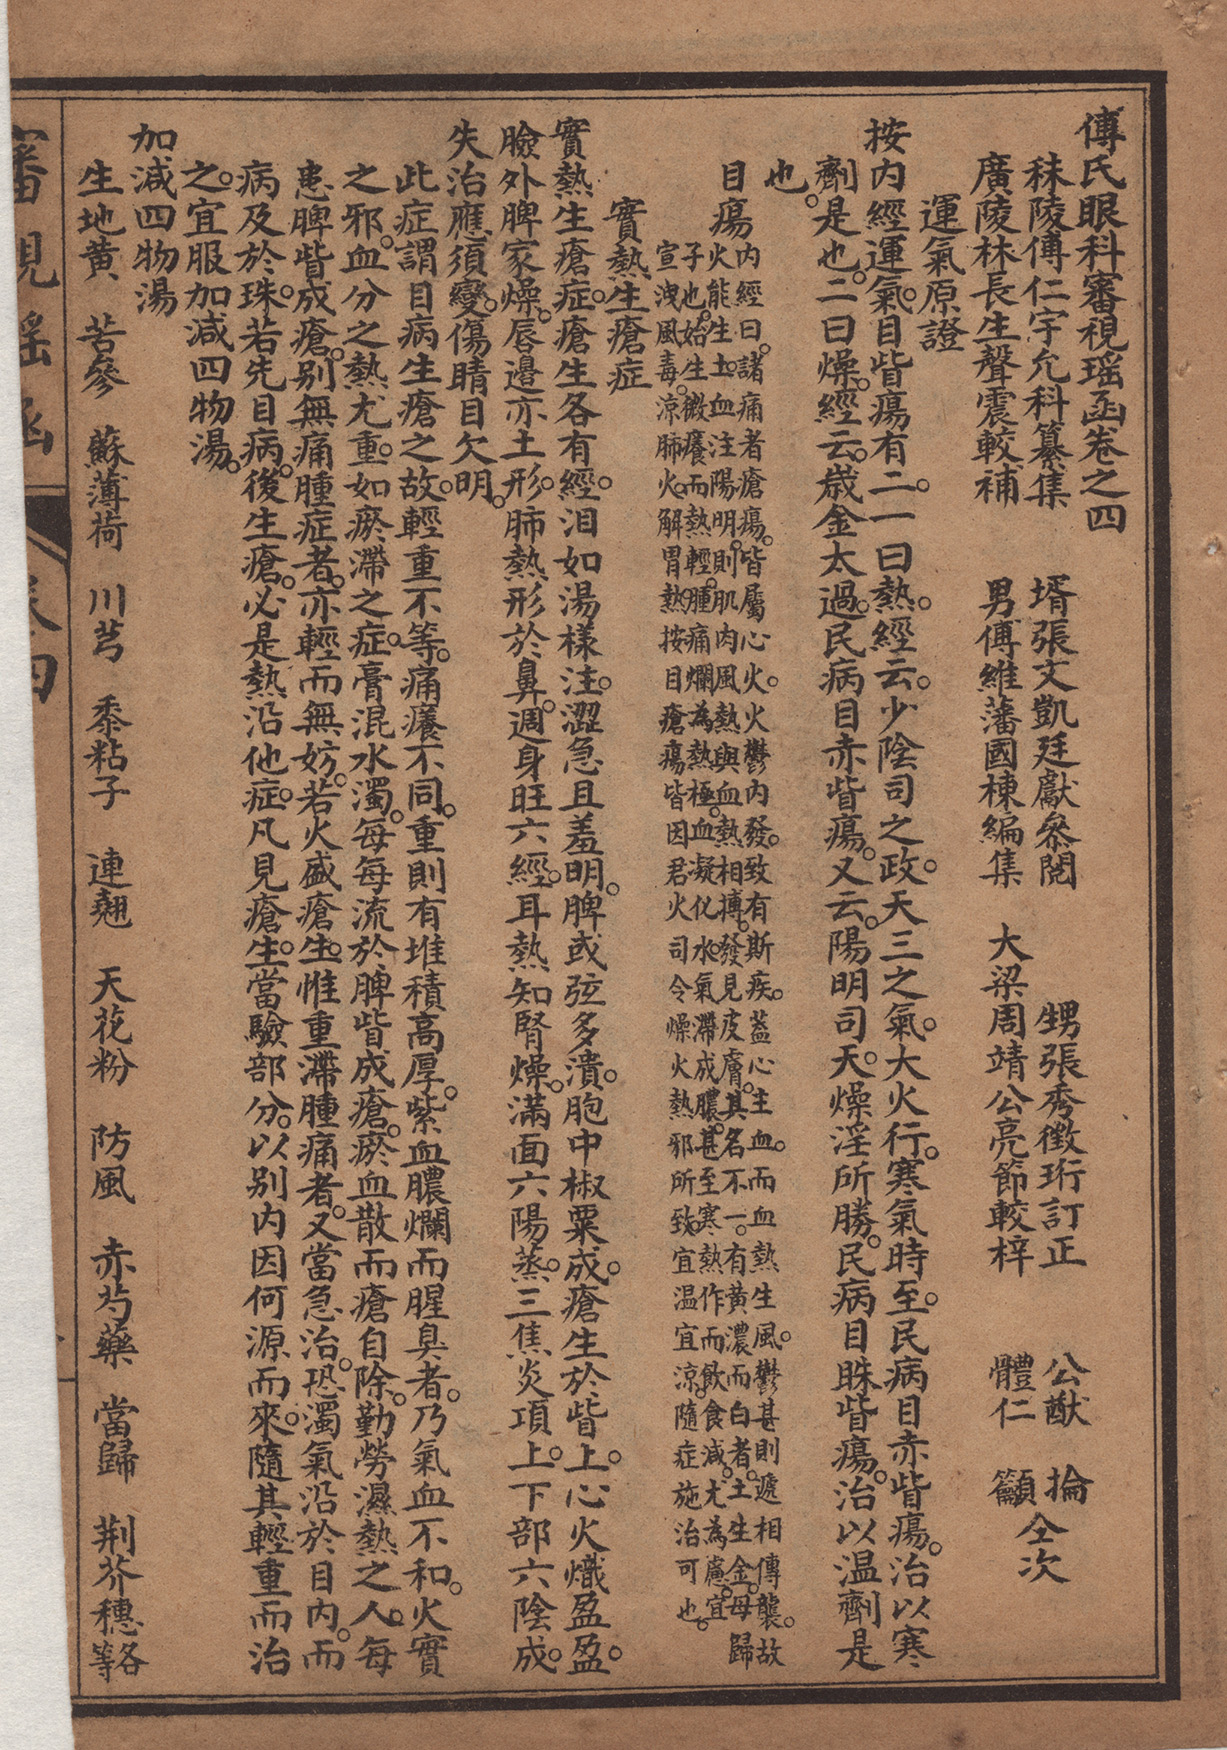 傅氏眼科審視瑶函卷之四
秣陵傅仁宇允科纂集　壻張文凱廷獻參閱　甥張秀徵珩訂正　公猷　掄
廣陵林長生聲震較補　男傅維藩國棟編集　大梁周靖公亮節較梓　體仁　籲　仝次
運氣原證
按内經運氣。目眥瘍有二。一曰熱。經云。少陰司之政。天三之氣。大火行。寒氣時至。民病目赤眥瘍。治以寒
劑是也。二曰燥。經云。歲金太過。民病目赤眥瘍。又云。陽明司天。燥淫所勝。民病目眛眥瘍。治以温劑是
也。
目瘍
内經曰。諸痛者瘡瘍。皆屬心火。火鬱内發。致有斯疾。蓋心主血。而血熱生風。鬱甚則遞相傳襲。故
火能生土。血注陽明。則肌肉風熱與血熱相搏。發見皮膚。其名不一。有黄濃而白者。土生金。母歸
子也。始生微癢而熱輕。腫痛爛為熱極。血凝化水。氣滯成膿。甚至寒熱作而飲食減。尤為慮。宜
宣洩風毒。涼肺火。解胃熱按目瘡瘍皆因君火司令燥火熱邪所致宜温宜涼。隨症施治可也。
實熱生瘡症
實熱生瘡症。瘡生各有經。泪如湯樣注。澀急且羞明。脾或弦多潰。胞中椒粟成。瘡生於眥上。心火熾盈盈。
臉外脾家燥。唇邉亦土形。肺熱形於鼻。週身旺六經。耳熱知腎燥。滿面六陽蒸。三焦炎項上。下部六陰成。
失治應須變。傷睛目欠明。
此症謂目病生瘡之故。輕重不等。痛癢不同。重則有堆積高厚。紫血膿爛而腥臭者。乃氣血不和。火實
之邪。血分之熱尤重。如瘀滯之症。膏混水濁。每每流於脾眥成瘡。瘀血散而瘡自除。勤勞濕熱之人。每
患脾眥成瘡。别無痛腫症者。亦輕而無妨。若火盛瘡生。惟重滯腫痛者。又當急治。恐濁氣沿於目内。而
病及於珠。若先目病。後生瘡。必是熱沿他症。凡見瘡生。當驗部分。以别内因何源而來。隨其輕重而治
之。宜服加减四物湯。
加减四物湯
生地黄　苦參　蘇薄荷　川芎　黍粘子　連翹　天花粉　防風　赤芍藥　當歸　荆芥穗各等